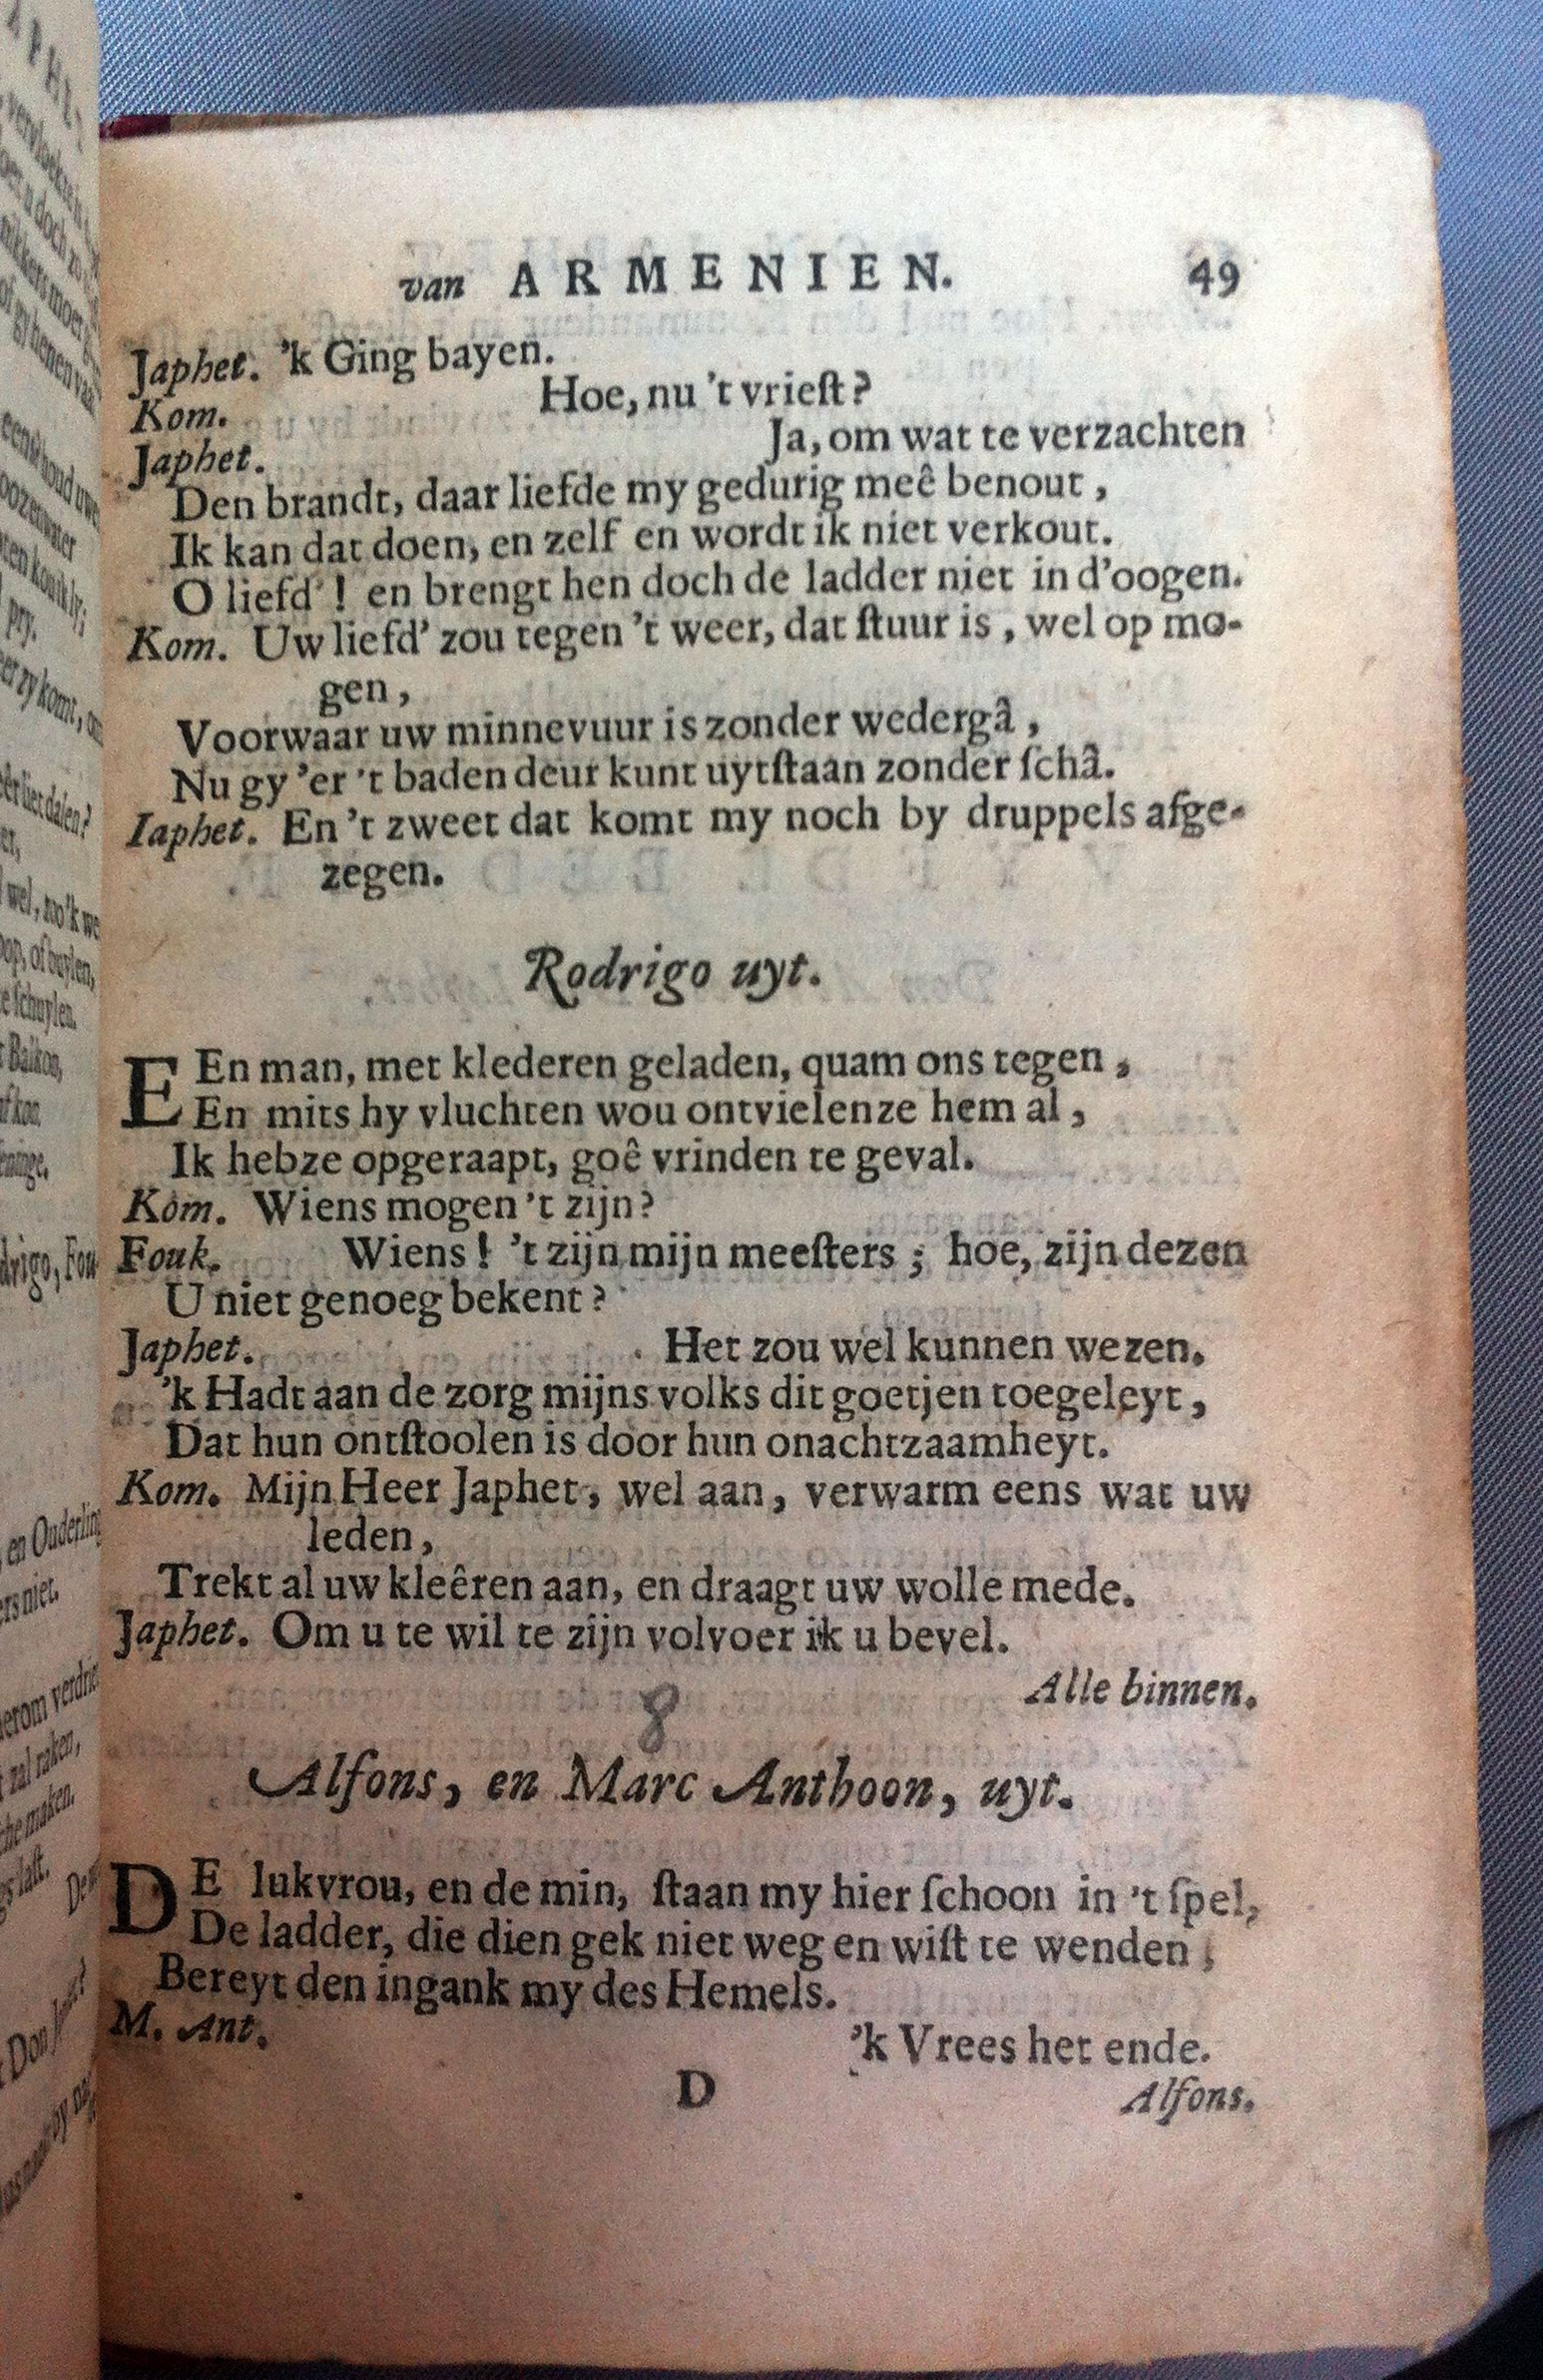 van ARMENIEN. 49
Japhet. 'k Ging bayen.
Kom. Hoe, nu 't vrieſt?
Japhet. Ja, om wat te verzachten
Den brandt, daar liefde my gedurig meê benout,
Ik kan dat doen, en zelf en wordt ik niet verkout.
O liefd'! en brengt hen doch de ladder niet in d'oogen.
Kom. Uw liefd' zou tegen 't weer, dat ſtuur is, wel op mo-
gen,
Voorwaar uw minnevuur is zonder wedergâ,
Nu gy 'er 't baden deur kunt uytſtaan zonder ſchâ.
Iaphet. En 't zweet dat komt my noch by druppels afge-
zegen.
Rodrigo uyt.
EEn man, met klederen geladen, quam ons tegen,
En mits hy vluchten wou ontvielenze hem al,
Ik hebze opgeraapt, goê vrinden te geval.
Kom. Wiens mogen 't zijn?
Fouk. Wiens! 't zijn mijn meeſters; hoe, zijn dezen
U niet genoeg bekent?
Japhet. Het zou wel kunnen wezen.
'k Hadt aan de zorg mijns volks dit goetjen toegeleyt,
Dat hun ontſtoolen is door hun onachtzaamheyt.
Kom. Mijn Heer Japhet, wel aan, verwarm eens wat uw
leden,
Trekt al uw kleêren aan, en draagt uw wolle mede.
Japhet. Om u te wil te zijn volvoer ik u bevel.
Alle binnen.
8
Alfons, en Marc Anthoon, uyt.
DE lukvrou, en de min, ſtaan my hier ſchoon in 't ſpel,
De ladder, die dien gek niet weg en wiſt te wenden,
Bereyt den ingank my des Hemels.
M. Ant. 'k Vrees het ende.
D Alfons.